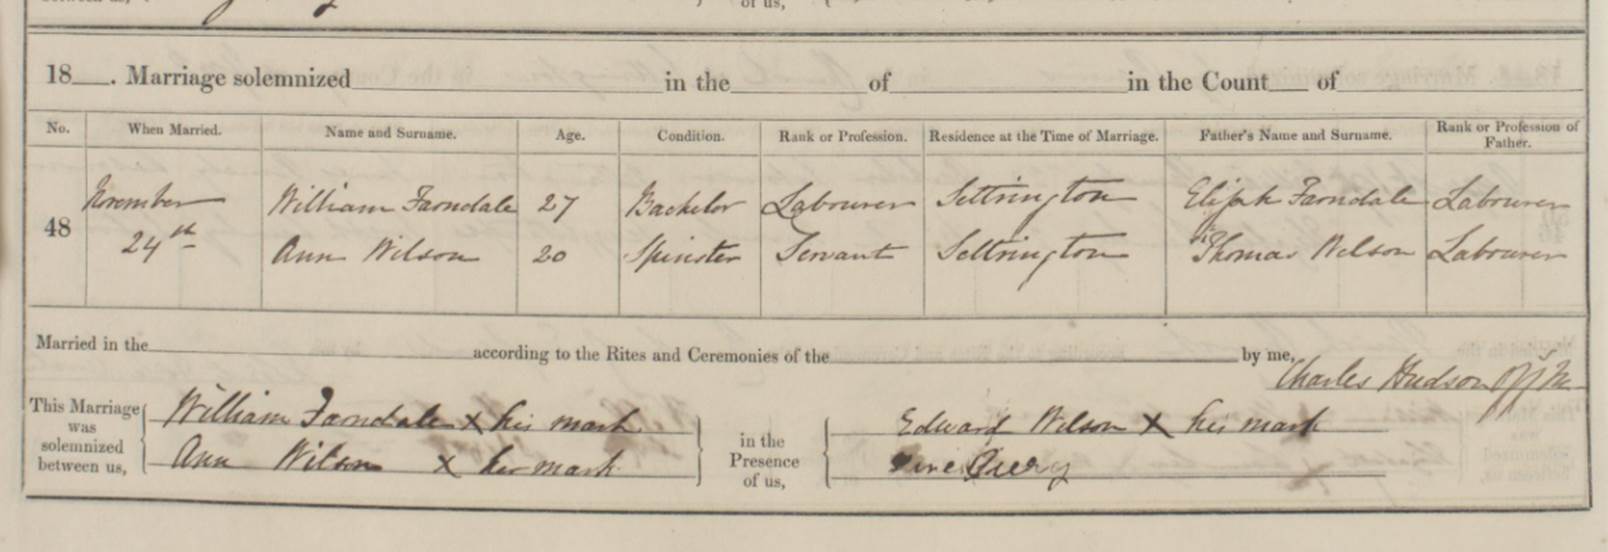 between us, of us,
18___. Marriage solemnized in the of in the Count of
No. When Married. Name and Surname. Age. Condition. Rank or Profession. Residence at the Time of Marriage. Father's Name and Surname. Rank or Profession of Father.
48 November 24th
William Farndale 27 Bachelor Labourer Settrington Elijah Farndale Labourer
Ann Wilson 20 Spinster Servant Settrington Thomas Wilson Labourer
Married in the according to the Rites and Ceremonies of the by me, Charles Hudson
This Marriage was solemnized between us,
William Farndale X his mark
Ann Wilson X her mark
in the Presence of us,
Edward Wilson X his mark